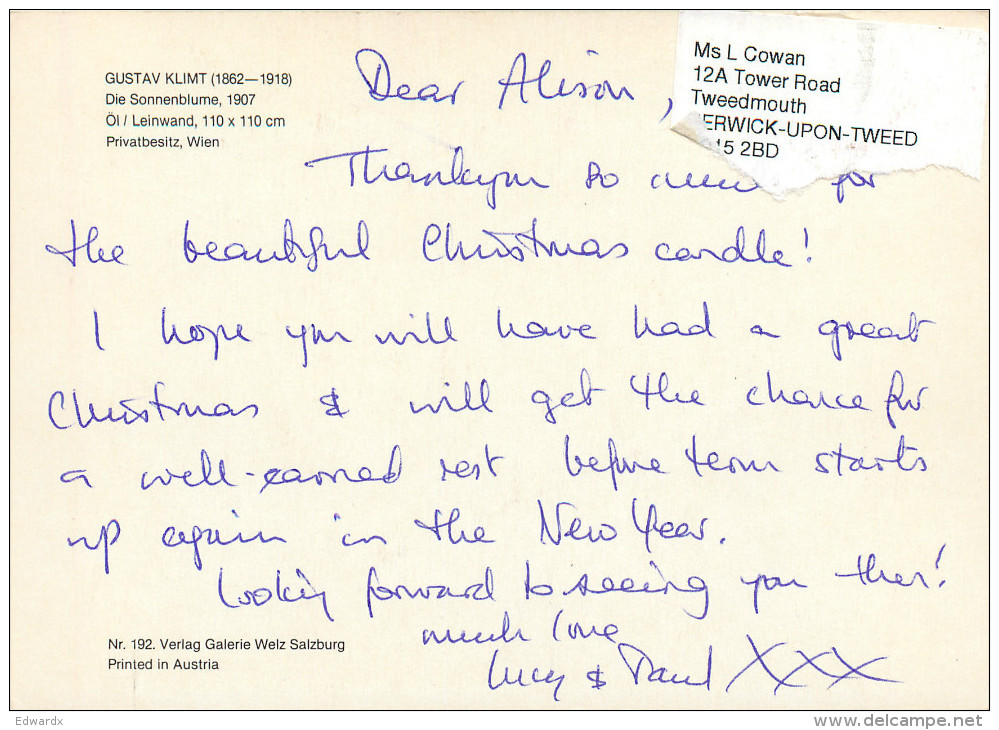 GUSTAV KLIMT (1862—1918)
Die Sonnenblume, 1907
Öl / Leinwand, 110 x 110 cm
Privatbesitz, Wien
Ms L Cowan
12A Tower Road
Tweedmouth
ERWICK-UPON-TWEED
15 2BD
Dear Alison,
Thankyou so for
the beautiful Christmas candle!
I hope you will have had a great
Christmas & will get the chance for
a well-earned rest before term starts
up again in the New Year.
Looking forward to seeing you then!
much love
Lucy & Paul XXX
Nr. 192. Verlag Galerie Welz Salzburg
Printed in Austria
Edwardx
delcampe.net